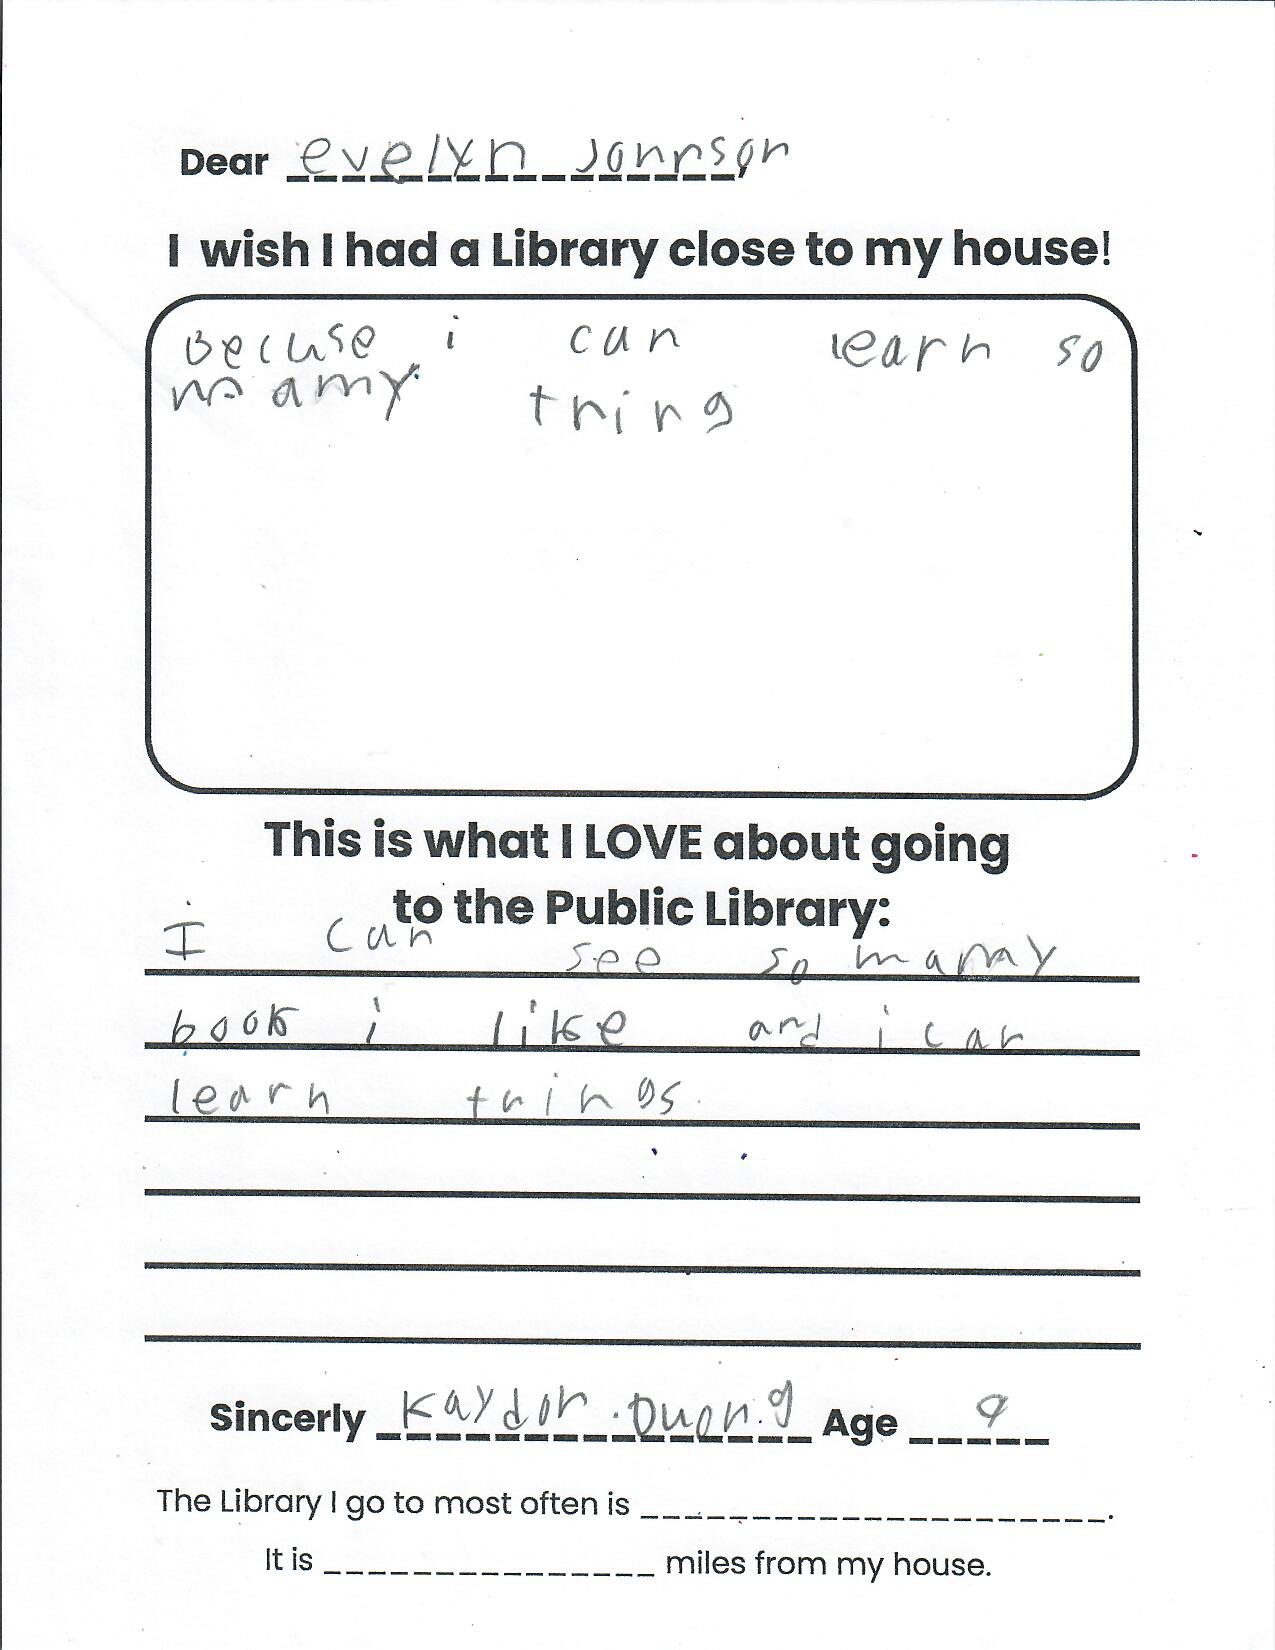 Dear evelyn Johnson
I wish I had a Library close to my house!
Becuse i can learn so
many thing
This is what I LOVE about going
to the Public Library:
I can see so many
book i like and i can
learn things.
Sincerly Kaydon Duong Age 9
The Library I go to most often is ________________.
It is _______________ miles from my house.